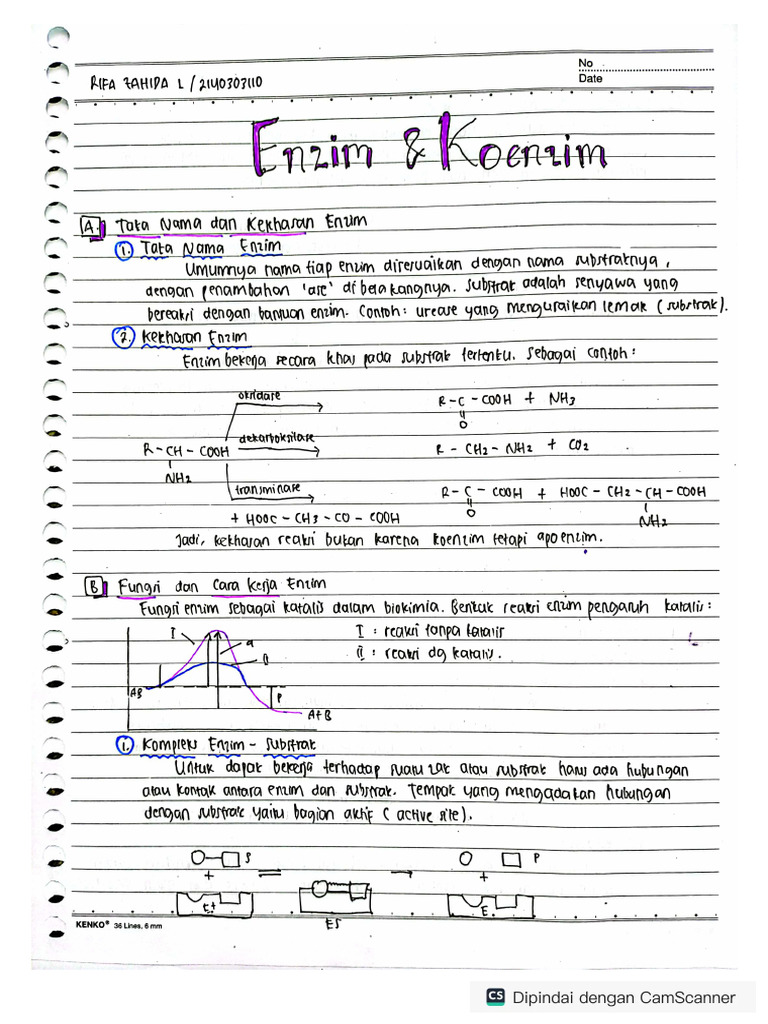 No
RIFA ZAHIDA L / 2140303110
Date
Enzim & Koenzim
A. Tata Nama dan Kekhasan Enzim
1. Tata Nama Enzim
Umumnya nama tiap enzim disesuaikan dengan nama substratnya,
dengan penambahan 'ase' di belakangnya. Substrat adalah senyawa yang
bereaksi dengan bantuan enzim. Contoh: urease yang menguraikan lemak (substrak).
2. Kekhasan Enzim
Enzim bekerja secara khas pada substrat tertentu. Sebagai contoh:
oksidase
R-C-COOH + NH3
O
dekarboksilase
R-CH-COOH
R-CH2-NH2 + CO2
NH2
transminase
R-C-COOH + HOOC-CH2-CH-COOH
+ HOOC-CH3-CO-COOH
O
NH2
Jadi, kekhasan reaksi bukan karena koenzim tetapi apoenzim.
B Fungsi dan Cara Kerja Enzim
Fungsi enzim sebagai katalis dalam biokimia. Bentuk reaksi enzim pengaruh katalis:
I
a
II
I : reaksi tanpa katalis
II : reaksi dg katalis.
AB
P
A+B
1. Kompleks Enzim - Substrak
Untuk dapat bekerja terhadap suatu zat atau substrak harus ada hubungan
atau kontak antara enzim dan substrak. Tempat yang mengadakan hubungan
dengan substrak yaitu bagian aktif (active site).
S
P
+
+
E+
ES
E.
KENKO® 36 Lines, 6 mm
CS Dipindai dengan CamScanner